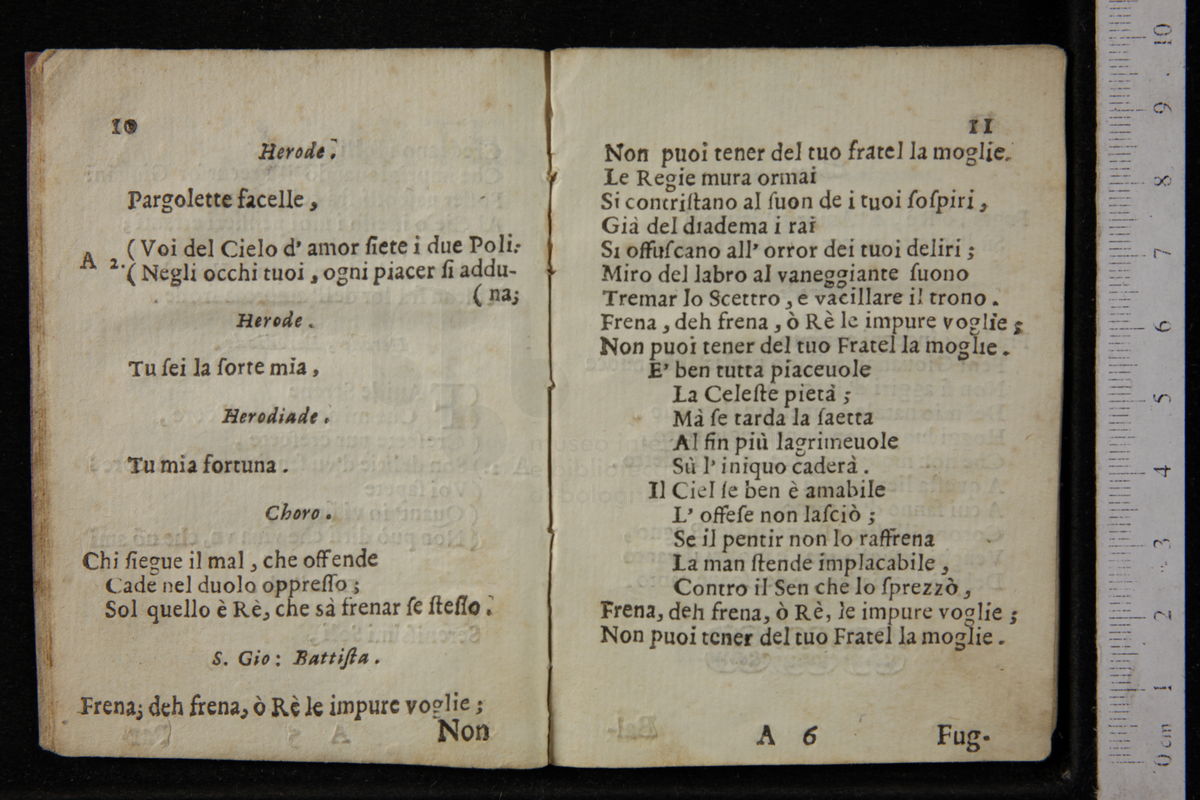 10
Herode.
Pargolette facelle,
(Voi del Cielo d' amor ſiete i due Poli.
A 2.
(Negli occhi tuoi, ogni piacer ſi addu-
(na;
Herode.
Tu ſei la ſorte mia,
Herodiade.
Tu mia fortuna.
Choro.
Chi ſiegue il mal, che offende
Cade nel duolo oppreſſo;
Sol quello è Rè, che sà frenar ſe ſteſſo.
S. Gio: Battiſta.
Frena; deh frena, ò Rè le impure voglie;
Non
11
Non puoi tener del tuo fratel la moglie.
Le Regie mura ormai
Si contriſtano al ſuon de i tuoi ſoſpiri,
Già del diadema i rai
Si offuſcano all' orror dei tuoi deliri;
Miro del labro al vaneggiante ſuono
Tremar lo Scettro, e vacillare il trono.
Frena, deh frena, ò Rè le impure voglie;
Non puoi tener del tuo Fratel la moglie.
E' ben tutta piaceuole
La Celeſte pietà;
Mà ſe tarda la ſaetta
Al fin più lagrimeuole
Sù l' iniquo caderà.
Il Ciel ſe ben è amabile
L' offeſe non laſciò;
Se il pentir non lo raffrena
La man ſtende implacabile,
Contro il Sen che lo ſprezzò,
Frena, deh frena, ò Rè, le impure voglie;
Non puoi tener del tuo Fratel la moglie.
A 6
Fug-
0 cm 1 2 3 4 5 6 7 8 9 10